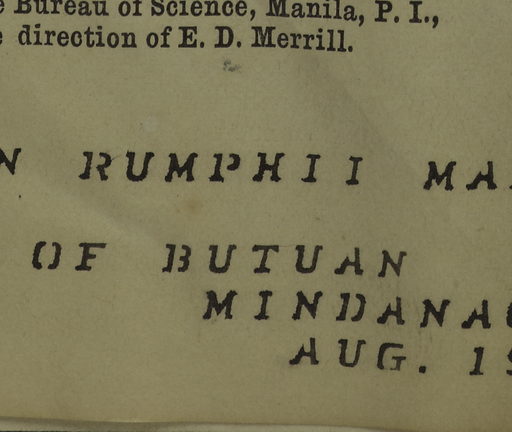 Bureau of Science, Manila, P. I.,
direction of E. D. Merrill.
N RUMPHII MA
OF BUTUAN
MINDANAO
AUG. 19